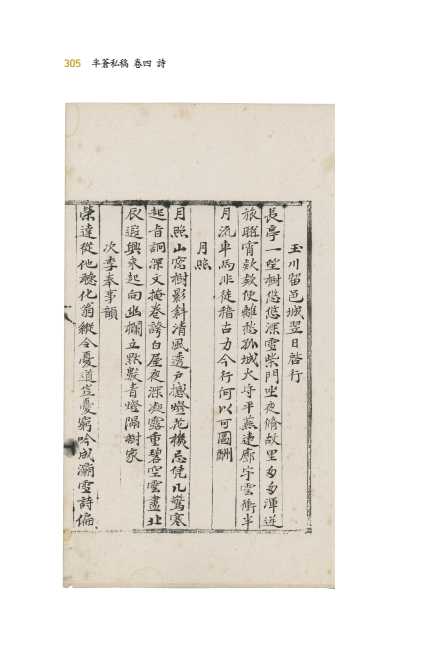 305 半蒼私稿 卷四 詩
玉川留邑城翌日啓行
長亭一望樹悠悠深雪柴門坐夜脩故里匆匆渾逆
旅聽宵欸欸使離愁孤城大守平蕪遠廓宇雲衝半
月流車馬非徒稽古力今行何以可圖酬
月照
月照山窓樹影斜清風透戶撼燈花機忘凭几驚寒
起旨詞深文掩卷誇白屋夜深凝露重碧空雲盡北
辰遐興來起向幽欄立點點青燈隔樹家
次李奉事韻
榮達從他聽化翁縱令憂道豈憂窮吟成灞雪詩偏